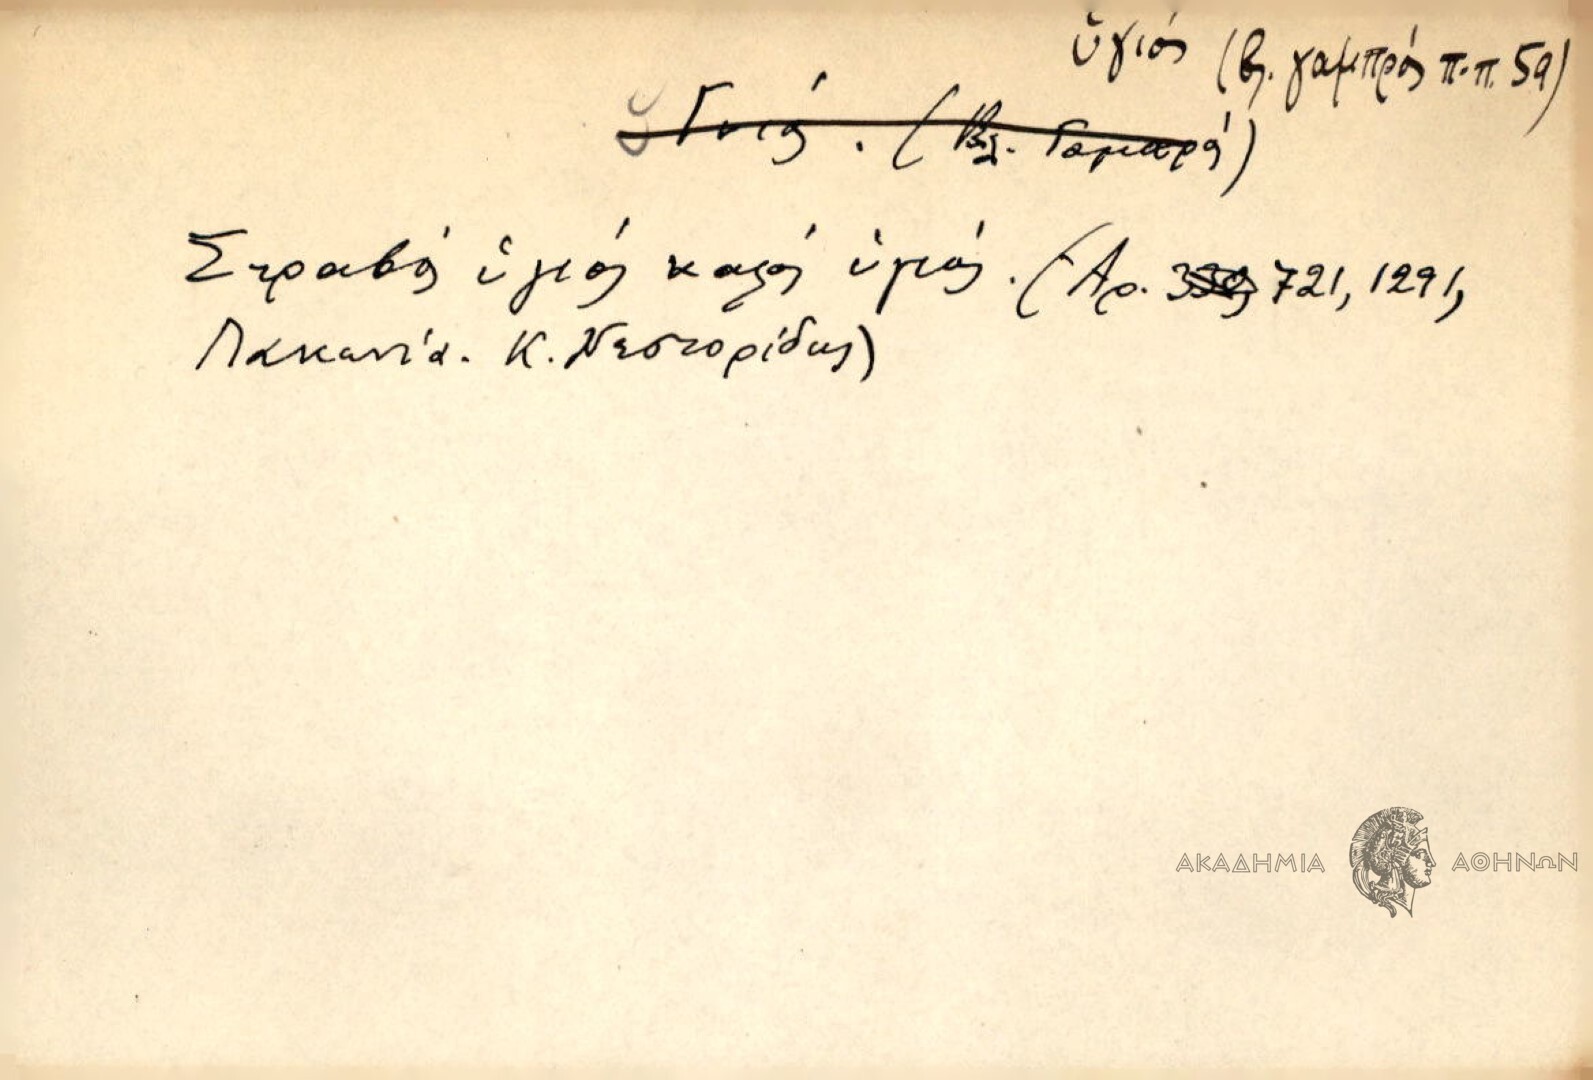 ὑγιός (βλ. γαμπρός π.π. 59)
Γυιός. (Βλ. Γαμπρός)
Στραβός ὑγιός καλός ὑγιός. (Ἀρ. 721, 1291,
Λακωνία. Κ. Νεστορίδης)
ΑΚΑΔΗΜΙΑ ΑΘΗΝΩΝ